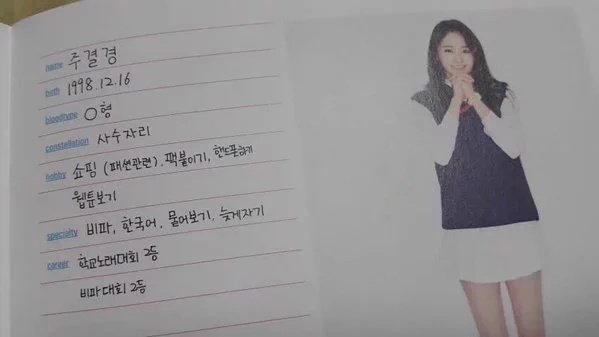 name 주결경
birth 1998.12.16
bloodtype O형
constellation 사수자리
hobby 쇼핑 (패션관련), 팩붙이기, 핸드폰하기
웹툰보기
specialty 비파, 한국어, 물어보기, 늦게자기
career 학교노래대회 2등
비파대회 2등